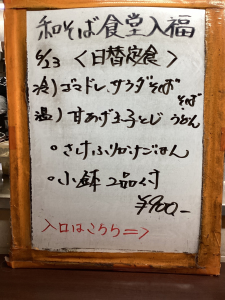 和そば食堂入福
6/23 〈日替定食〉
冷)ゴマドレサラダそば
そば・
温)甘あげ玉子とじ うどん
○さけふりかけごはん
○小鉢 2品付
¥900-
入口はこちら⇒